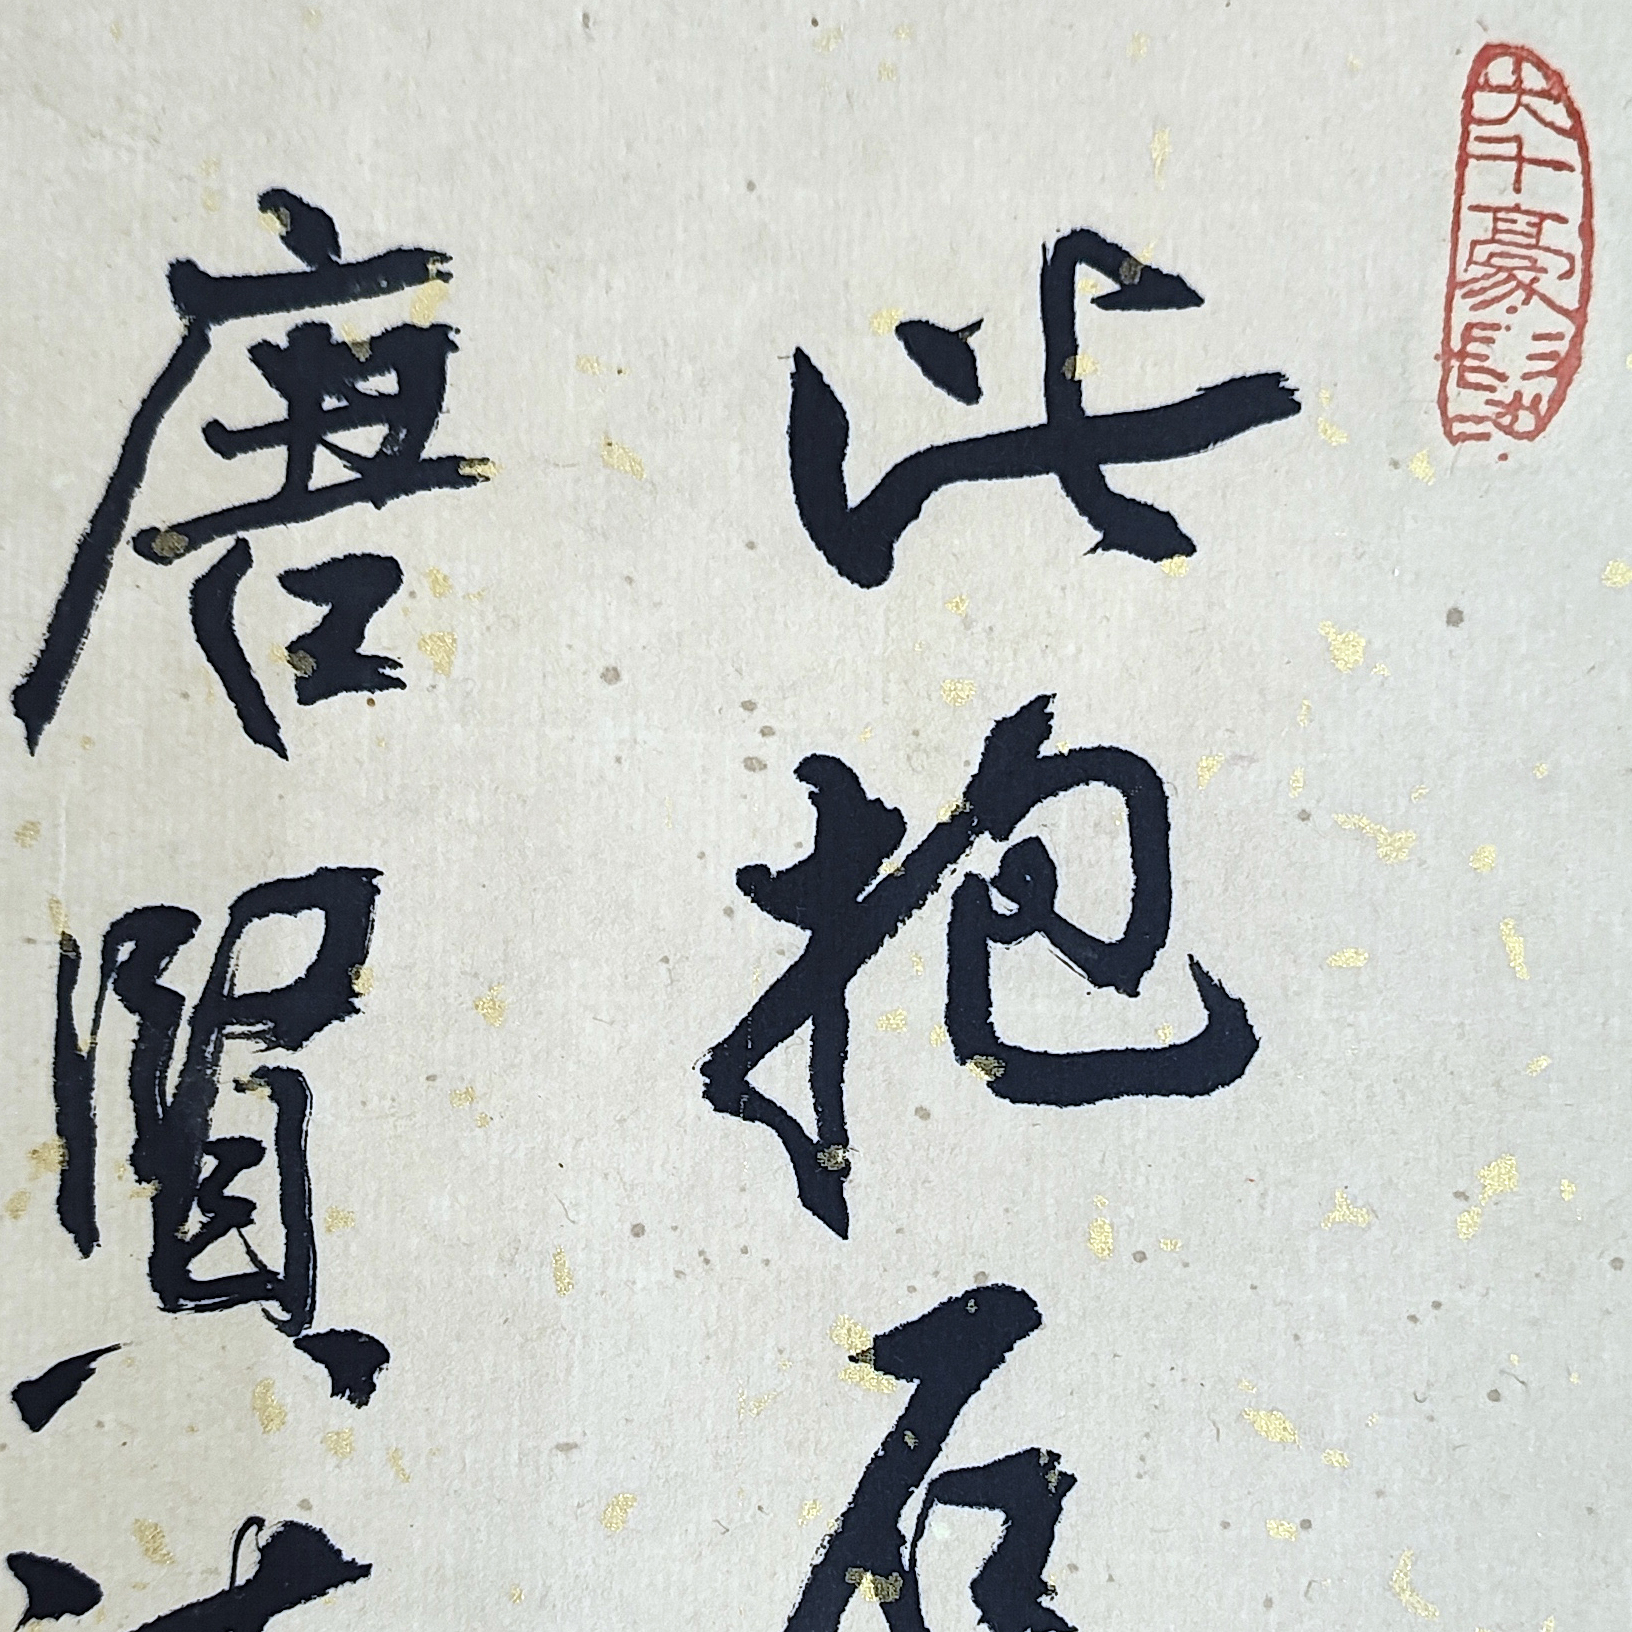 大千豪髮
此抱石
唐賢